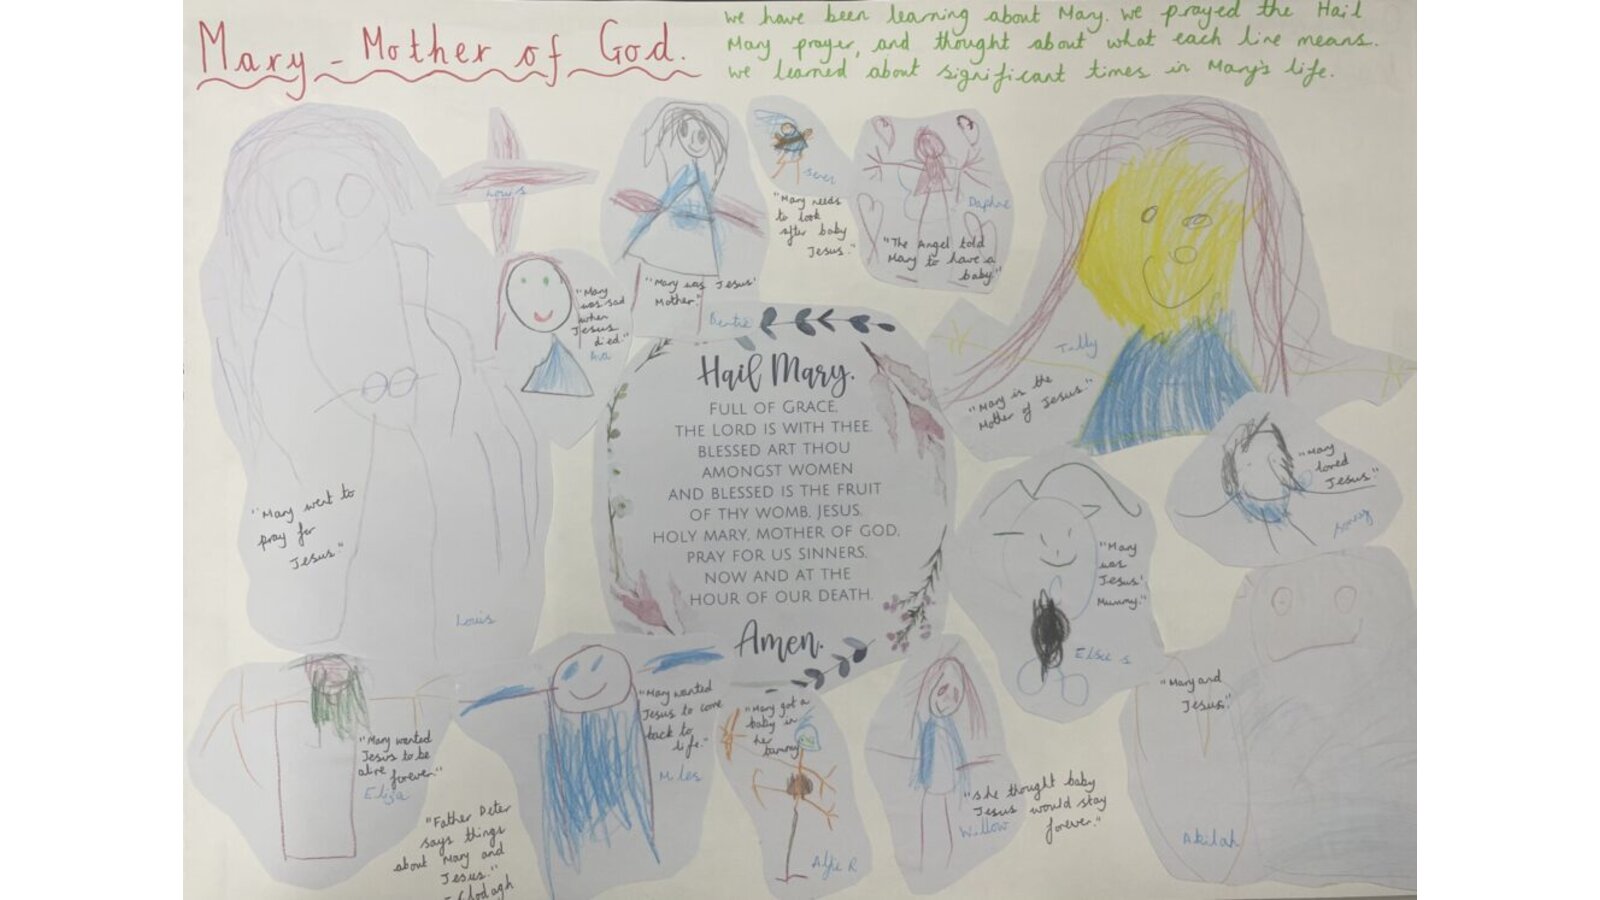 Mary - Mother of God.
We have been learning about Mary. We prayed the Hail
Mary prayer, and thought about what each line means.
We learned about significant times in Mary's life.
Louis
"Mary needs
to look
after baby
Jesus."
Daphne
"The Angel told
Mary to have a
baby."
"Mary was Jesus'
Mother."
"Mary
was sad
when
Jesus
died."
Ava
Tilly
"Mary is the
Mother of Jesus."
"Mary
loved
Jesus."
Sonny
"Mary went to
pray for
Jesus."
Louis
Hail Mary.
FULL OF GRACE,
THE LORD IS WITH THEE.
BLESSED ART THOU
AMONGST WOMEN
AND BLESSED IS THE FRUIT
OF THY WOMB, JESUS.
HOLY MARY, MOTHER OF GOD,
PRAY FOR US SINNERS,
NOW AND AT THE
HOUR OF OUR DEATH.
Amen.
"Mary
was
Jesus'
Mummy."
Elsie S
"Mary and
Jesus."
Akilah
"Mary wanted
Jesus to be
alive forever."
Eliza
"Father Peter
says things
about Mary and
Jesus."
- Clodagh
"Mary wanted
Jesus to come
back to
life."
Miles
"Mary got a
baby in
her
tummy."
Alfie R
"She thought baby
Jesus would stay
forever."
Willow